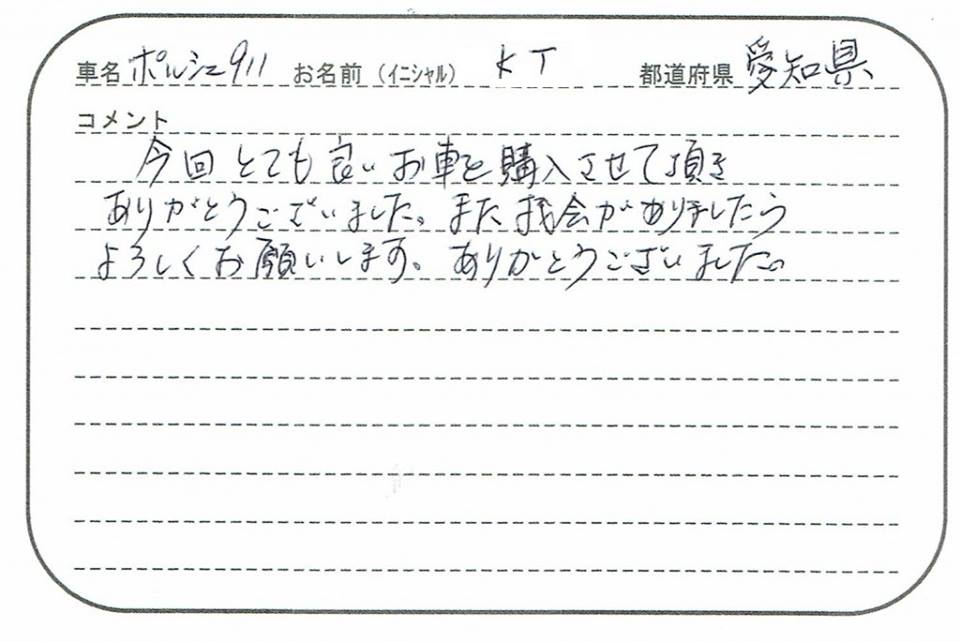 車名 ポルシェ911 お名前（イニシャル） KT 都道府県 愛知県
コメント
今回とても良いお車を購入させて頂き
ありがとうございました。また機会がありましたら
よろしくお願いします。ありがとうございました。